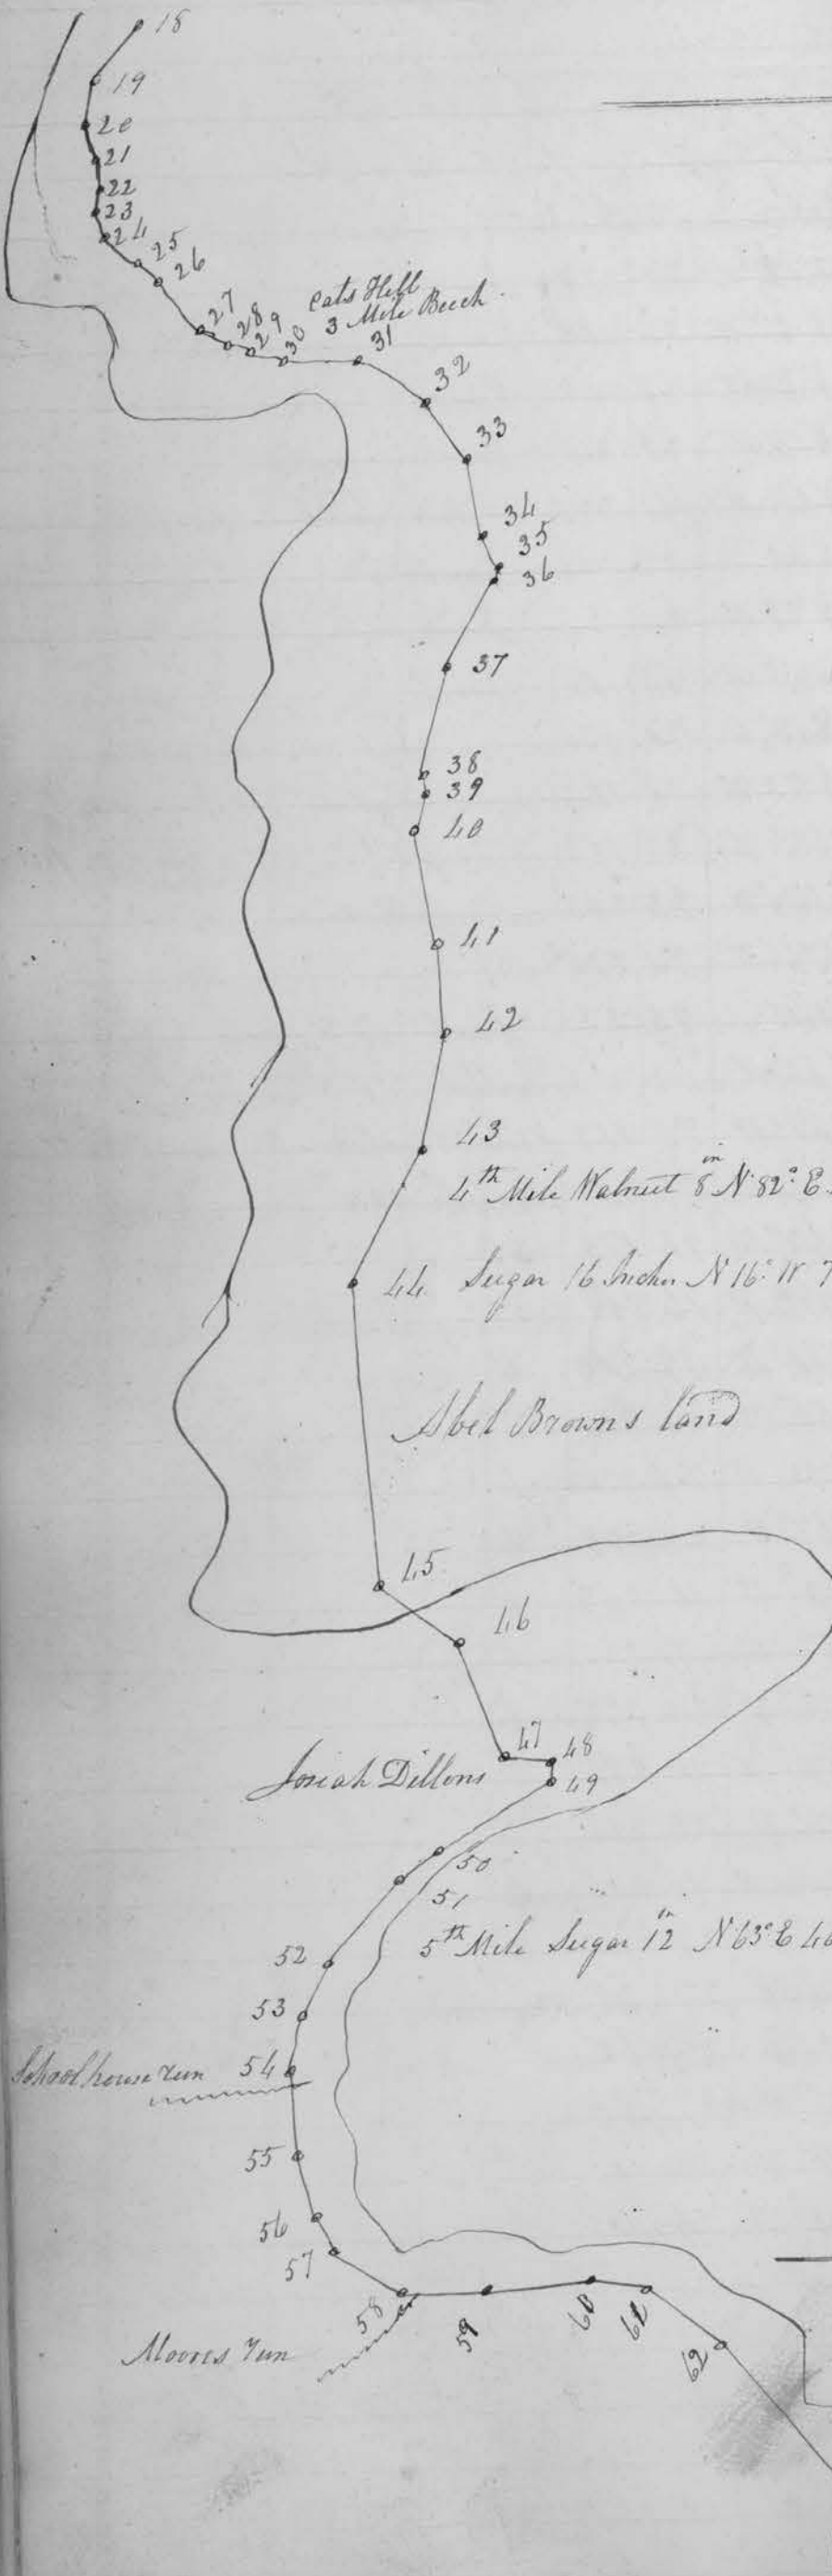 18
19
20
21
22
23
24
25
26
27
28
29
30
Cats Hill
3 Mile Beech
31
32
33
34
35
36
37
38
39
40
41
42
43
4th Mile Walnut 8 in N 82° E
44 Sugar 16 Inches N 16° W 7
Abel Browns land
45
46
47
48
Josiah Dillons
49
50
51
5th Mile Sugar 12 in N 63° E 46
52
53
Schoolhouse run 54
55
56
57
58
59
60
61
62
Moores run